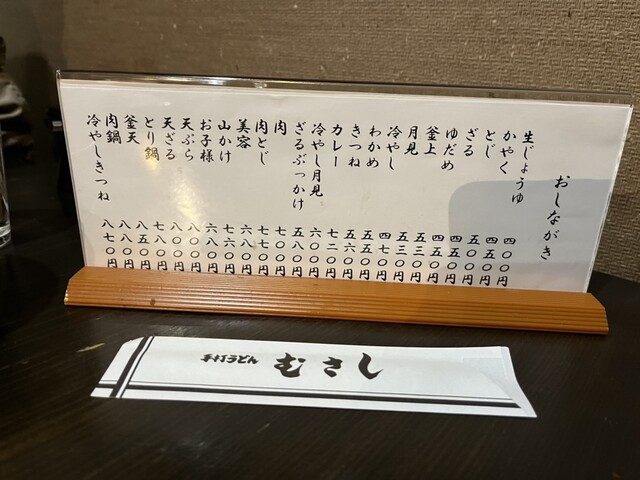 おしながき
生じょうゆ 四〇〇円
かやく 四五〇円
とじ 五〇〇円
ざる 四五〇円
ゆだめ 四五〇円
釜上 五三〇円
月見 五三〇円
冷やし 四七〇円
わかめ 五五〇円
きつね 五六〇円
カレー 七二〇円
冷やし月見 六〇〇円
ざるぶっかけ 五八〇円
肉 七〇〇円
肉とじ 七七〇円
美容 六八〇円
山かけ 七六〇円
お子様 六八〇円
天ぷら 八〇〇円
天ざる 八〇〇円
とり鍋 七八〇円
釜天 八五〇円
肉鍋 八〇〇円
冷やしきつね 八七〇円
手打うどん むさし